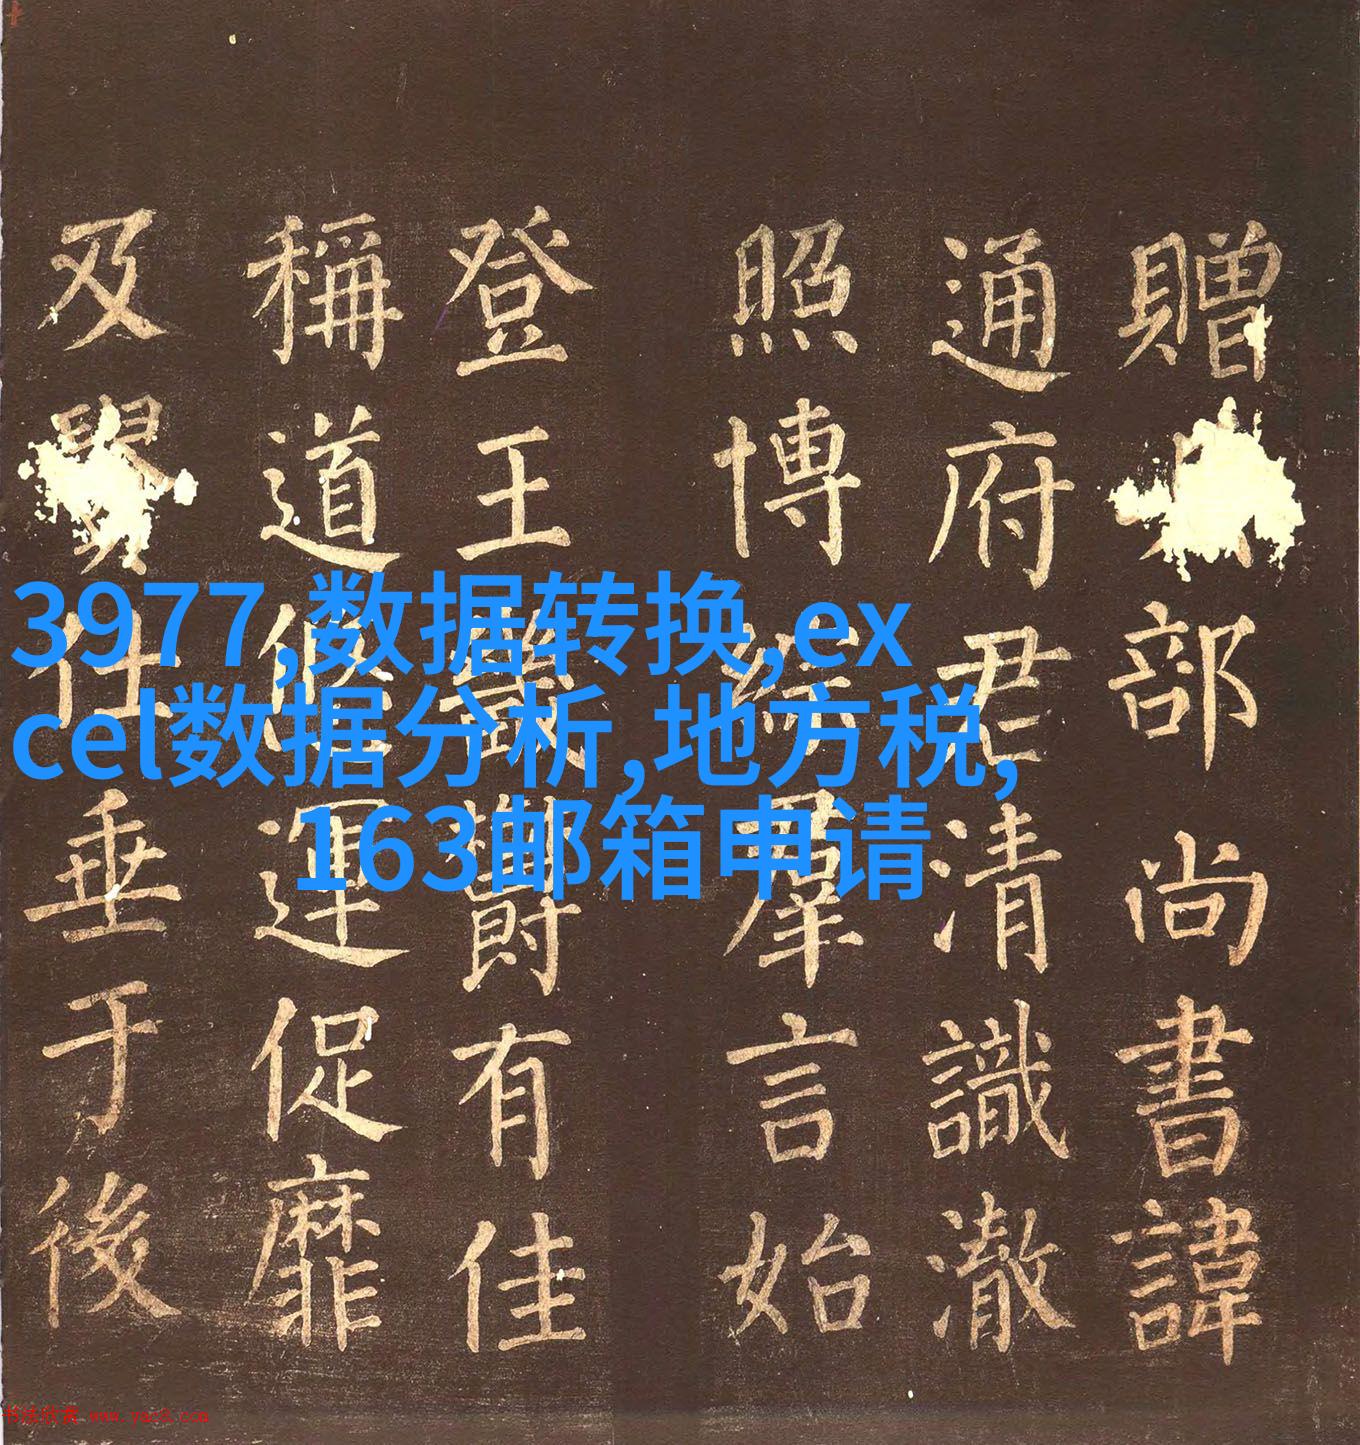 贈部尚書諱
通府君清識澈
照博綜羣言始
登王畿欝有佳
稱道悠運促靡
及仕垂于後
3977,数据转换,ex
cel数据分析,地方税,
163邮箱申请
书法欣赏 www.yac8.com